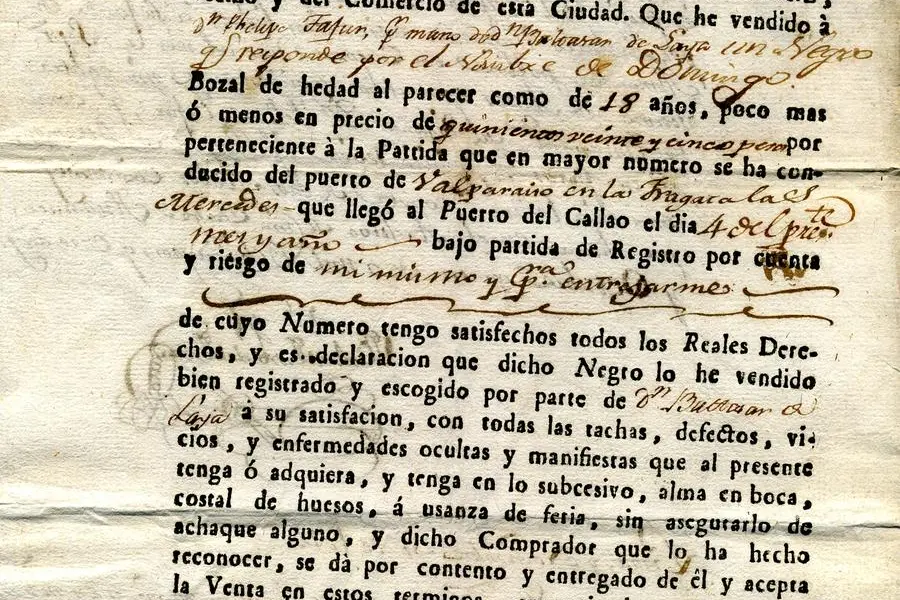 y del Comercio de esta Ciudad. Que he vendido à
Dn Phelipe Dn Baltasar de Laya un Negro
q responde por el Nombre de Domingo
Bozal de hedad al parecer como de 18 años, poco mas
ó menos en precio de quinientos veinte y cinco pesos por
perteneciente à la Partida que en mayor numero se ha con-
ducido del puerto de Valparaiso en la Fragata la S
Mercedes que llegó al Puerto del Callao el dia 4 del preste
mes y año bajo partida de Registro por cuenta
y riesgo de mi mismo y pra entregarme
de cuyo Numero tengo satisfechos todos los Reales Dere-
chos, y es declaracion que dicho Negro lo he vendido
bien registrado y escogido por parte de Dn Baltasar de
Laya à su satisfacion, con todas las tachas, defectos, vi-
cios, y enfermedades ocultas y manifiestas que al presente
tenga ó adquiera, y tenga en lo subcesivo, alma en boca,
costal de huesos, á usanza de feria, sin asegurarlo de
achaque alguno, y dicho Comprador que lo ha hecho
reconocer, se dà por contento y entregado de él y acepta
la Venta en estos terminos